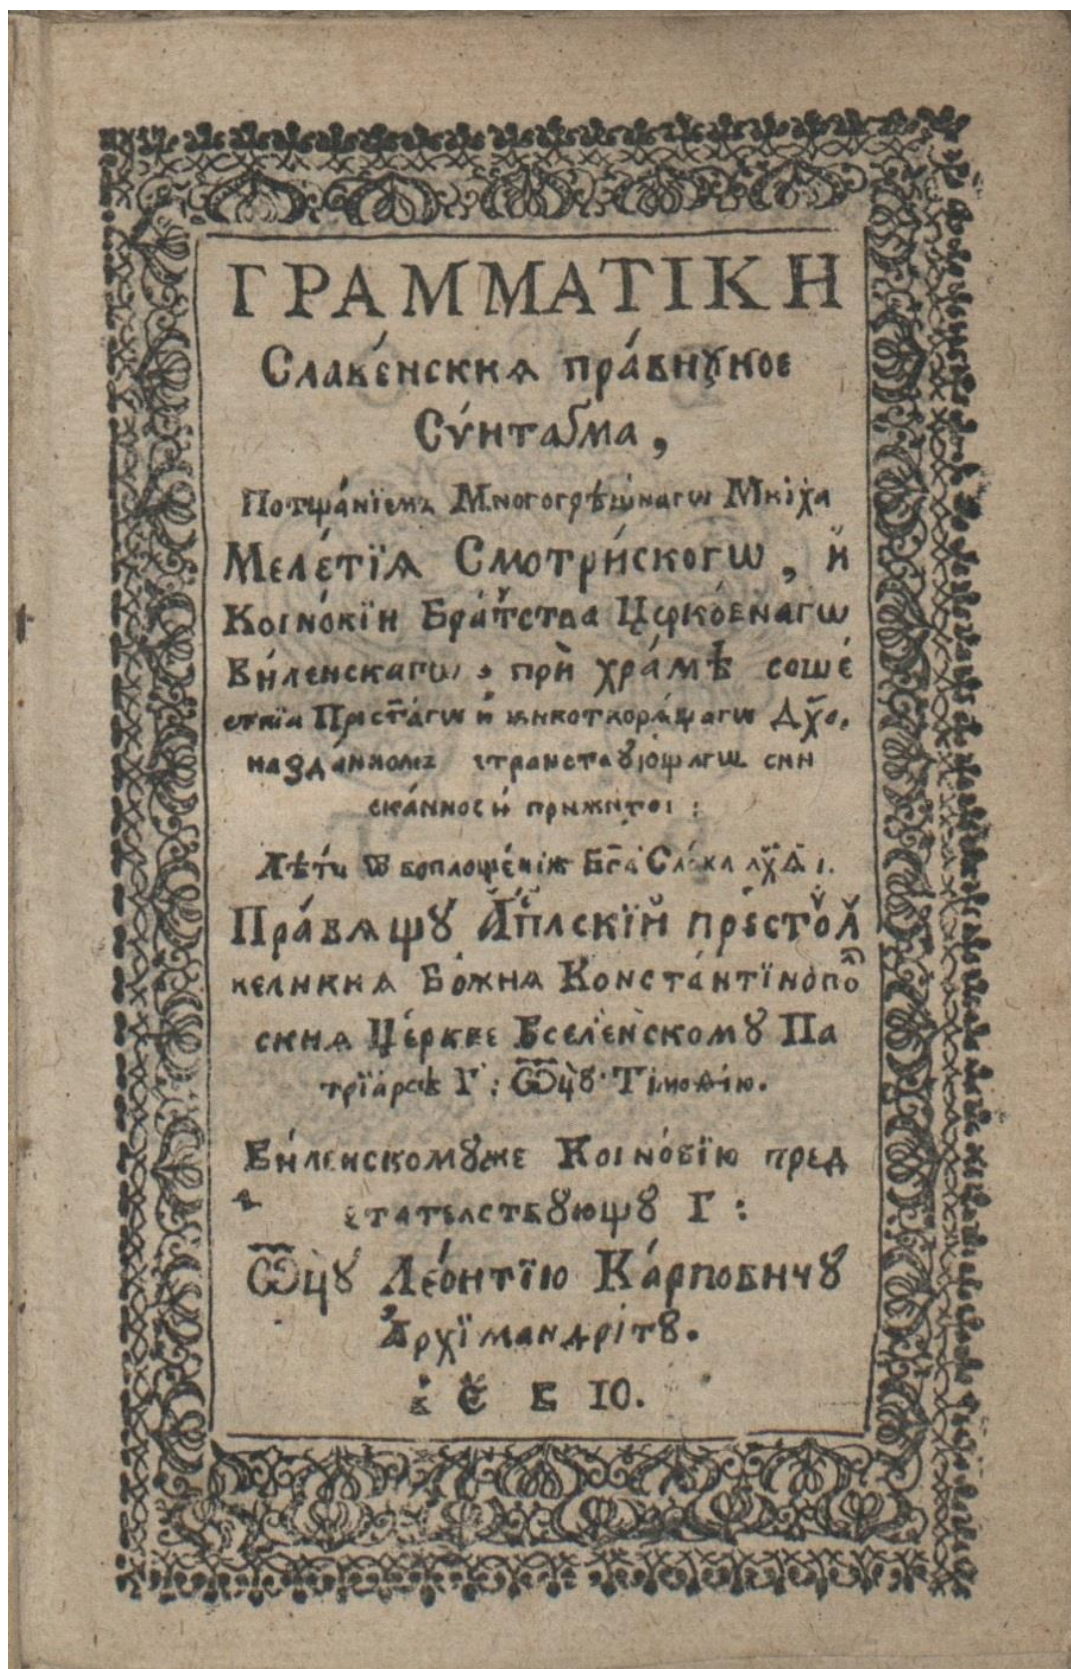 ГРАММАТІКИ
Славе́нскиѧ пра́вилное
Сѵ́нтаґма,
Потща́нїемъ Многогрѣ́шнагѡ Мни́ха
Меле́тїѧ Смотри́скогѡ, и҆
Коіно́вїи Бра́тства Церко́внагѡ
Ви́ленскагѡ, прѝ хра́мѣ соше́
ствїа Прест҃а́гѡ и҆ животворѧ́щагѡ Дх҃а,
назда́нномъ странствꙋю́щагѡ сни
ска́нное и҆ прижи́тое:
Лѣ́тѡ ѿ воплоще́нїѧ Бг҃а Сло́ва ҂ах҃ѳі.
Пра́вѧщꙋ А҆пⷭ҇лскїй престо́лъ
великиѧ Бо́жиѧ Константїнопо́л
скиѧ Це́ркве Вселе́нскомꙋ Па
трїа́рсѣ Г: Ѿцꙋ̀ Тімоѳе́ю.
Ви́ленскомꙋже Коіно́вїю пред
стателствꙋющꙋ Г:
Ѿцꙋ̀ Лео́нтїю Ка́рповичꙋ
А҆рхїмандрі́тꙋ.